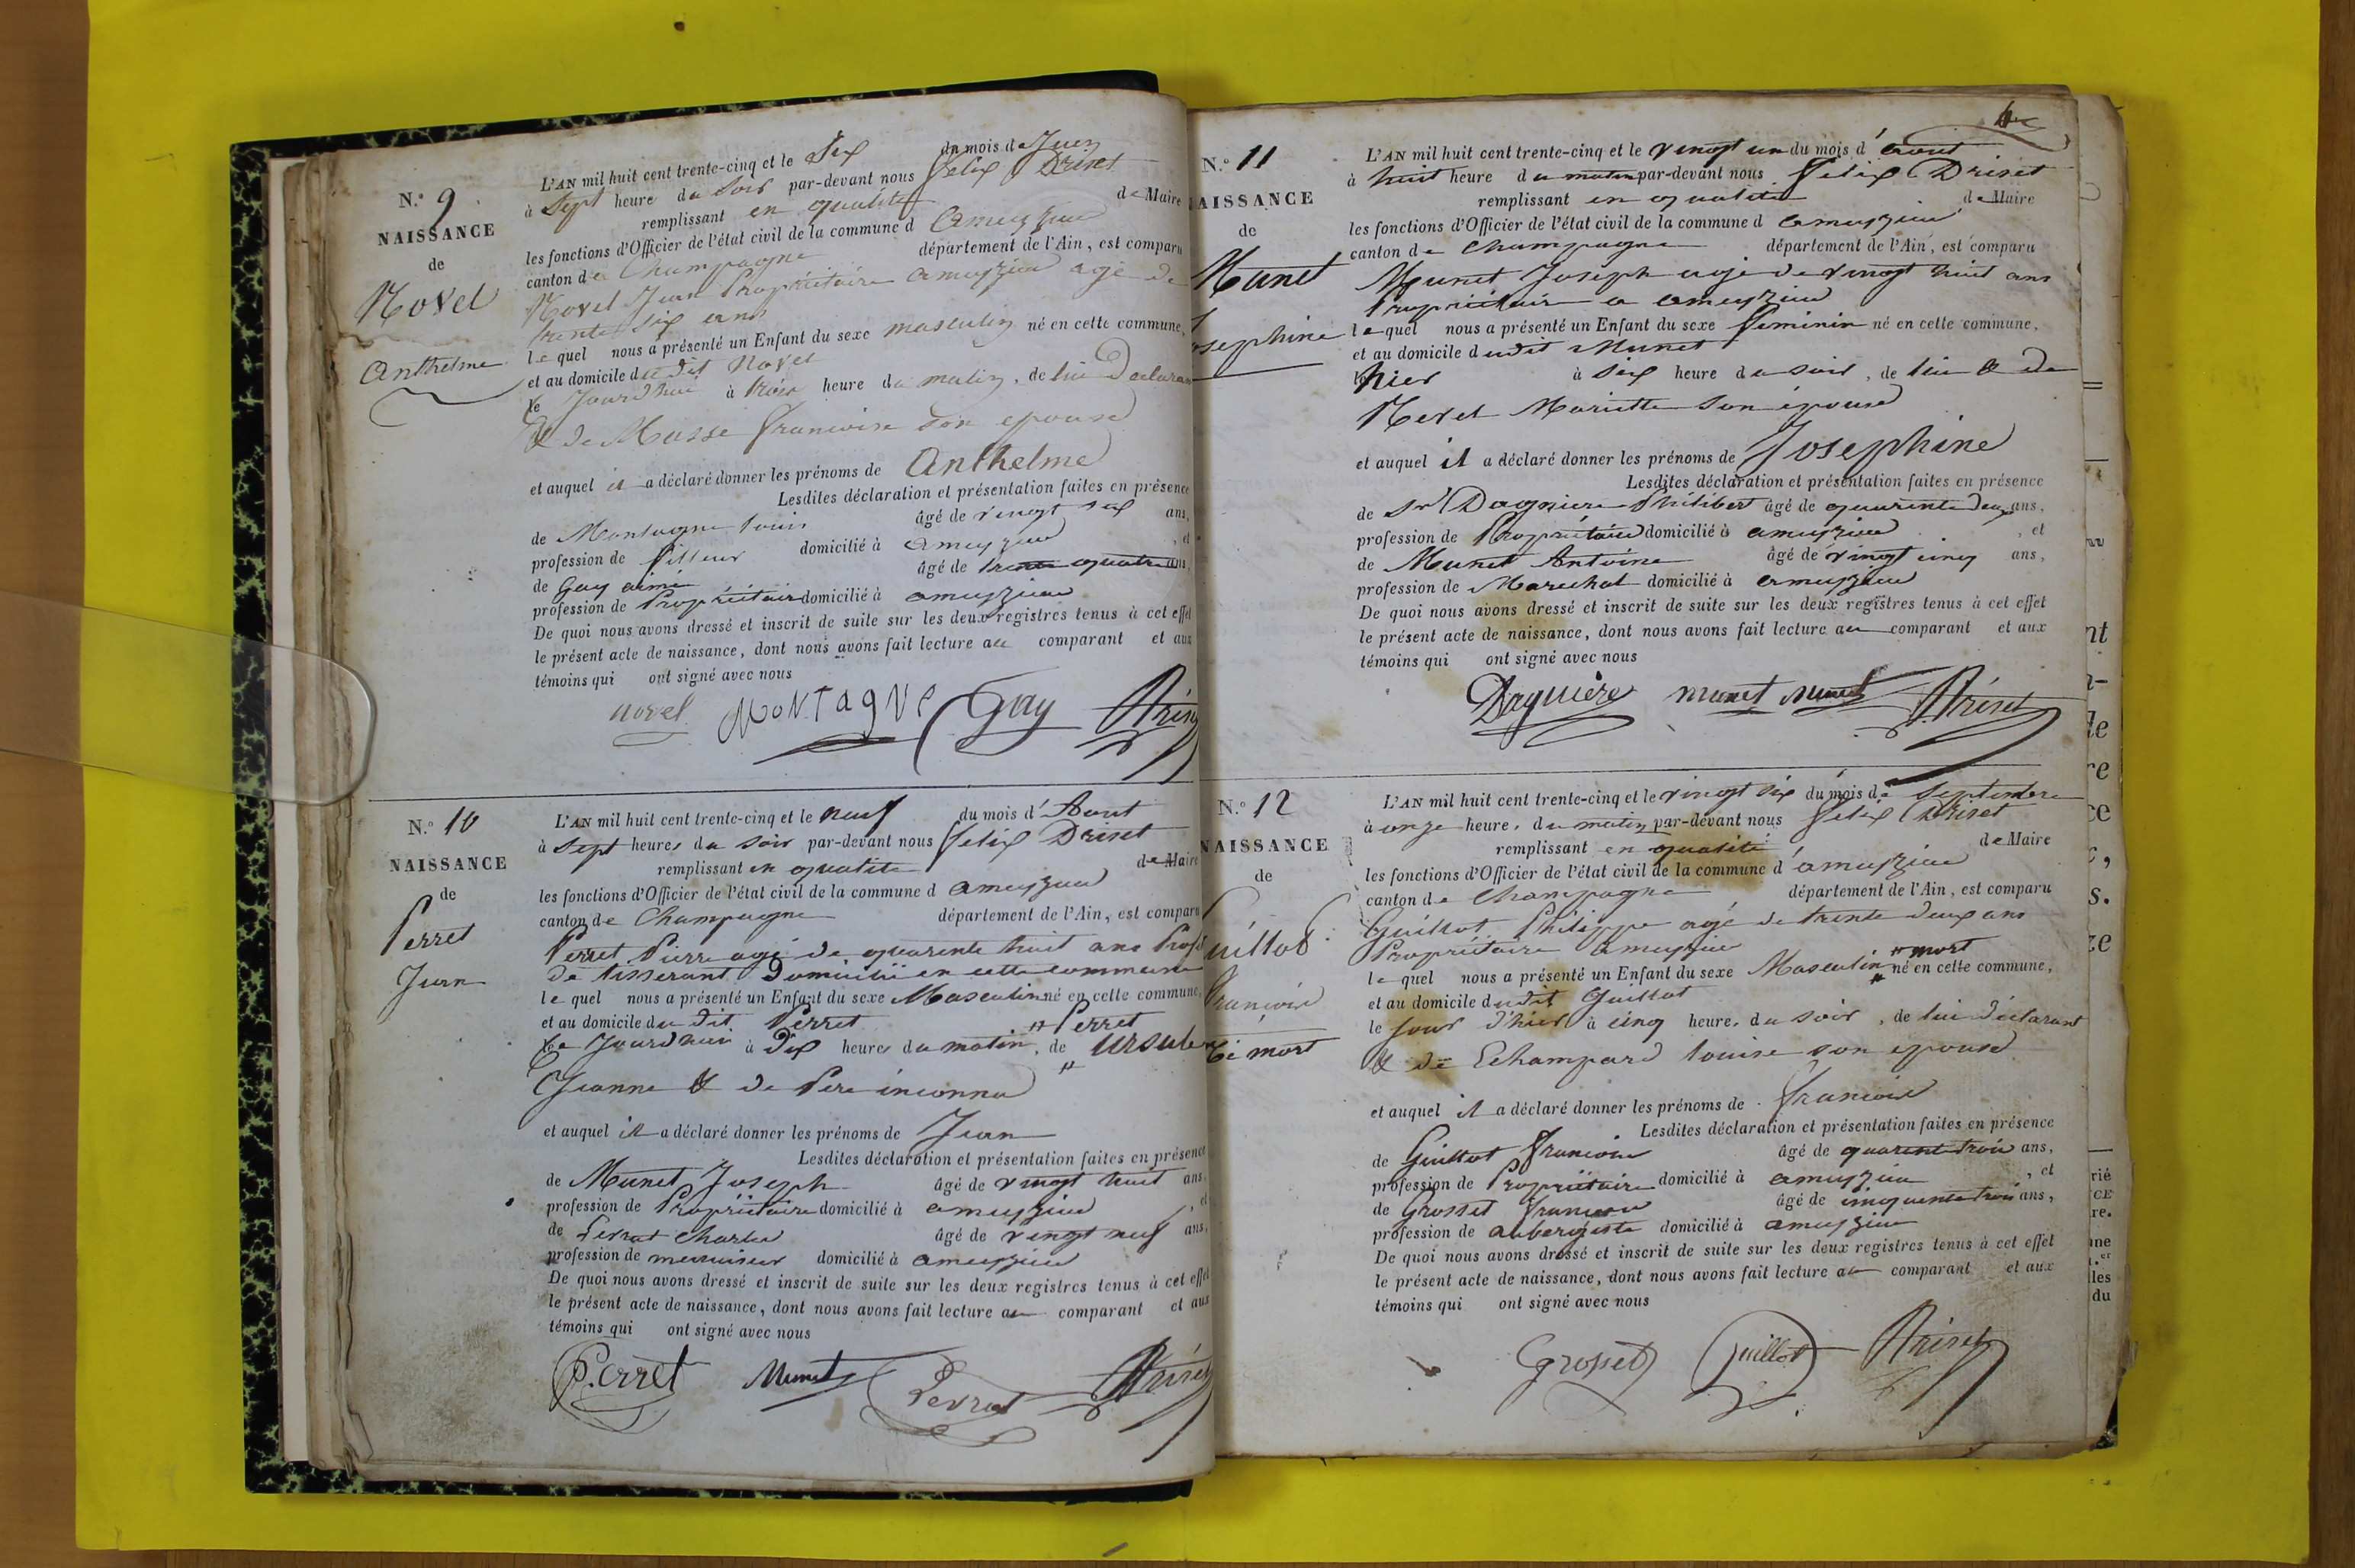 N.° 9
NAISSANCE
de
Novel
Anthelme
L'AN mil huit cent trente-cinq et le Six du mois de Juin
à Sept heure du Soir par-devant nous Félix Driset
remplissant en qualité de Maire
les fonctions d'Officier de l'état civil de la commune d ameyzieu
canton de Champagne département de l'Ain, est comparu
Novel Jean Propriétaire a ameyzieu agé de
trente Six ans
le quel nous a présenté un Enfant du sexe masculin né en cette commune,
et au domicile du dit Novel
le Jourdhui à trois heure du matin, de lui Declarant
& de Masse francoise son epouse
et auquel il a déclaré donner les prénoms de Anthelme
Lesdites déclaration et présentation faites en présence
de Montagne Louis âgé de vingt Six ans,
profession de tilleur domicilié à ameyzieu, et
de Gay aimé âgé de trente quatre ans,
profession de Propriétaire domicilié à ameyzieu
De quoi nous avons dressé et inscrit de suite sur les deux registres tenus à cet effet
le présent acte de naissance, dont nous avons fait lecture au comparant et aux
témoins qui ont signé avec nous
novel MoNTagNe Gay Driset
N.° 10
NAISSANCE
de
Perret
Jean
L'AN mil huit cent trente-cinq et le neuf du mois d'Aout
à Sept heures du Soir par-devant nous Félix Driset
remplissant en qualité de Maire
les fonctions d'Officier de l'état civil de la commune d ameyzieu
canton de Champagne département de l'Ain, est comparu
Perret Pierre agé de quarente huit ans Prof
de tisserant Domicilié en cette commune
le quel nous a présenté un Enfant du sexe Masculin né en cette commune,
et au domicile du dit Perret # Perret
le Jourdhui à Dix heures du matin, de # Ursule
Jeanne & de Pere inconnu
et auquel il a déclaré donner les prénoms de Jean
Lesdites déclaration et présentation faites en présence
de Munet Joseph âgé de vingt huit ans,
profession de Propriétaire domicilié à ameyzieu, et
de Perrat Charles âgé de vingt neuf ans,
profession de menuisier domicilié à ameyzieu
De quoi nous avons dressé et inscrit de suite sur les deux registres tenus à cet effet
le présent acte de naissance, dont nous avons fait lecture au comparant et aux
témoins qui ont signé avec nous
P.erret Munet Perrat Driset
N.° 11
NAISSANCE
de
Munet
Josephine
L'AN mil huit cent trente-cinq et le vingt un du mois d'aout
à huit heure du matin par-devant nous Félix Driset
remplissant en qualité de Maire
les fonctions d'Officier de l'état civil de la commune d ameyzieu
canton de Champagne département de l'Ain, est comparu
Munet Joseph agé de vingt huit ans
Propriétaire a ameyzieu
le quel nous a présenté un Enfant du sexe feminin né en cette commune,
et au domicile dudit Munet
hier à Six heure du soir, de lui & de
Novel Mariette son épouse
et auquel il a déclaré donner les prénoms de Josephine
Lesdites déclaration et présentation faites en présence
de Sr Dagniere Philibert âgé de quarente Deux ans,
profession de Propriétaire domicilié à ameyzieu, et
de Munet Antoine âgé de vingt cinq ans,
profession de Marechal domicilié à ameyzieu
De quoi nous avons dressé et inscrit de suite sur les deux registres tenus à cet effet
le présent acte de naissance, dont nous avons fait lecture au comparant et aux
témoins qui ont signé avec nous
Dagnière munet munet Driset
N.° 12
NAISSANCE
de
Guillot
francois
né mort
L'AN mil huit cent trente-cinq et le vingt Six du mois de Septembre
à onze heure, du matin par-devant nous Félix Driset
remplissant en qualité de Maire
les fonctions d'Officier de l'état civil de la commune d'ameyzieu
canton de Champagne département de l'Ain, est comparu
Guillot Philippe agé de trente deux ans
Propriétaire a ameyzieu # mort
le quel nous a présenté un Enfant du sexe Masculin # né en cette commune,
et au domicile dudit Guillot
le Jour d'hier à cinq heure, du soir, de lui déclarant
& de Echampard Louise son epouse
et auquel il a déclaré donner les prénoms de francois
Lesdites déclaration et présentation faites en présence
de Guillot francois âgé de quarente trois ans,
profession de Propriétaire domicilié à ameyzieu, et
de Grosset francois âgé de cinquente trois ans,
profession de aubergiste domicilié à ameyzieu
De quoi nous avons dressé et inscrit de suite sur les deux registres tenus à cet effet
le présent acte de naissance, dont nous avons fait lecture au comparant et aux
témoins qui ont signé avec nous
Grosset Guillot Driset